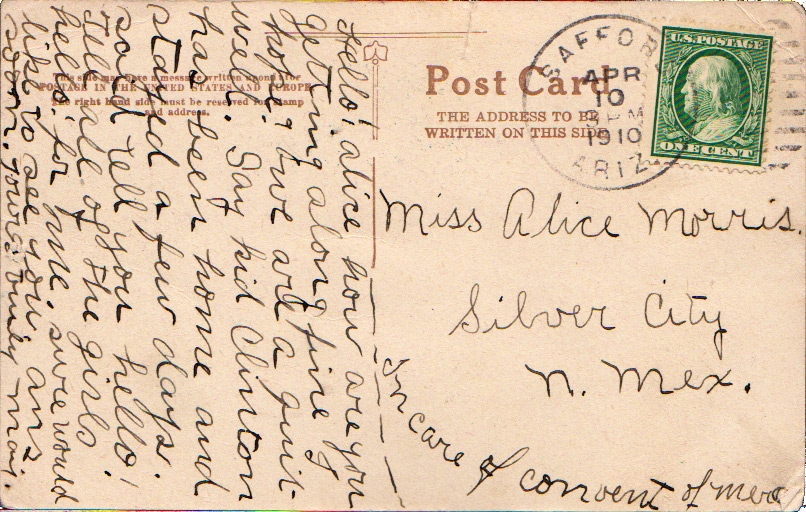 Hello! alice how are you
getting along fine I
hope, & we are a quit-
well. Say kid Clinton
has been home and
stayed a few days.
said tell you hello!
Tell all of the girls
hello! for me, sure would
like to see you, ans
soon. Yours truly
This side may have a message written upon it for
POSTAGE IN THE UNITED STATES AND EUROPE
The right hand side must be reserved for stamp
and address.
Post Card
THE ADDRESS TO BE
WRITTEN ON THIS SIDE
SAFFOR
APR
10
PM
1910
ARIZ
U.S. POSTAGE
ONE CENT
Miss Alice Morris.
Silver City
N. Mex.
In care of convent of